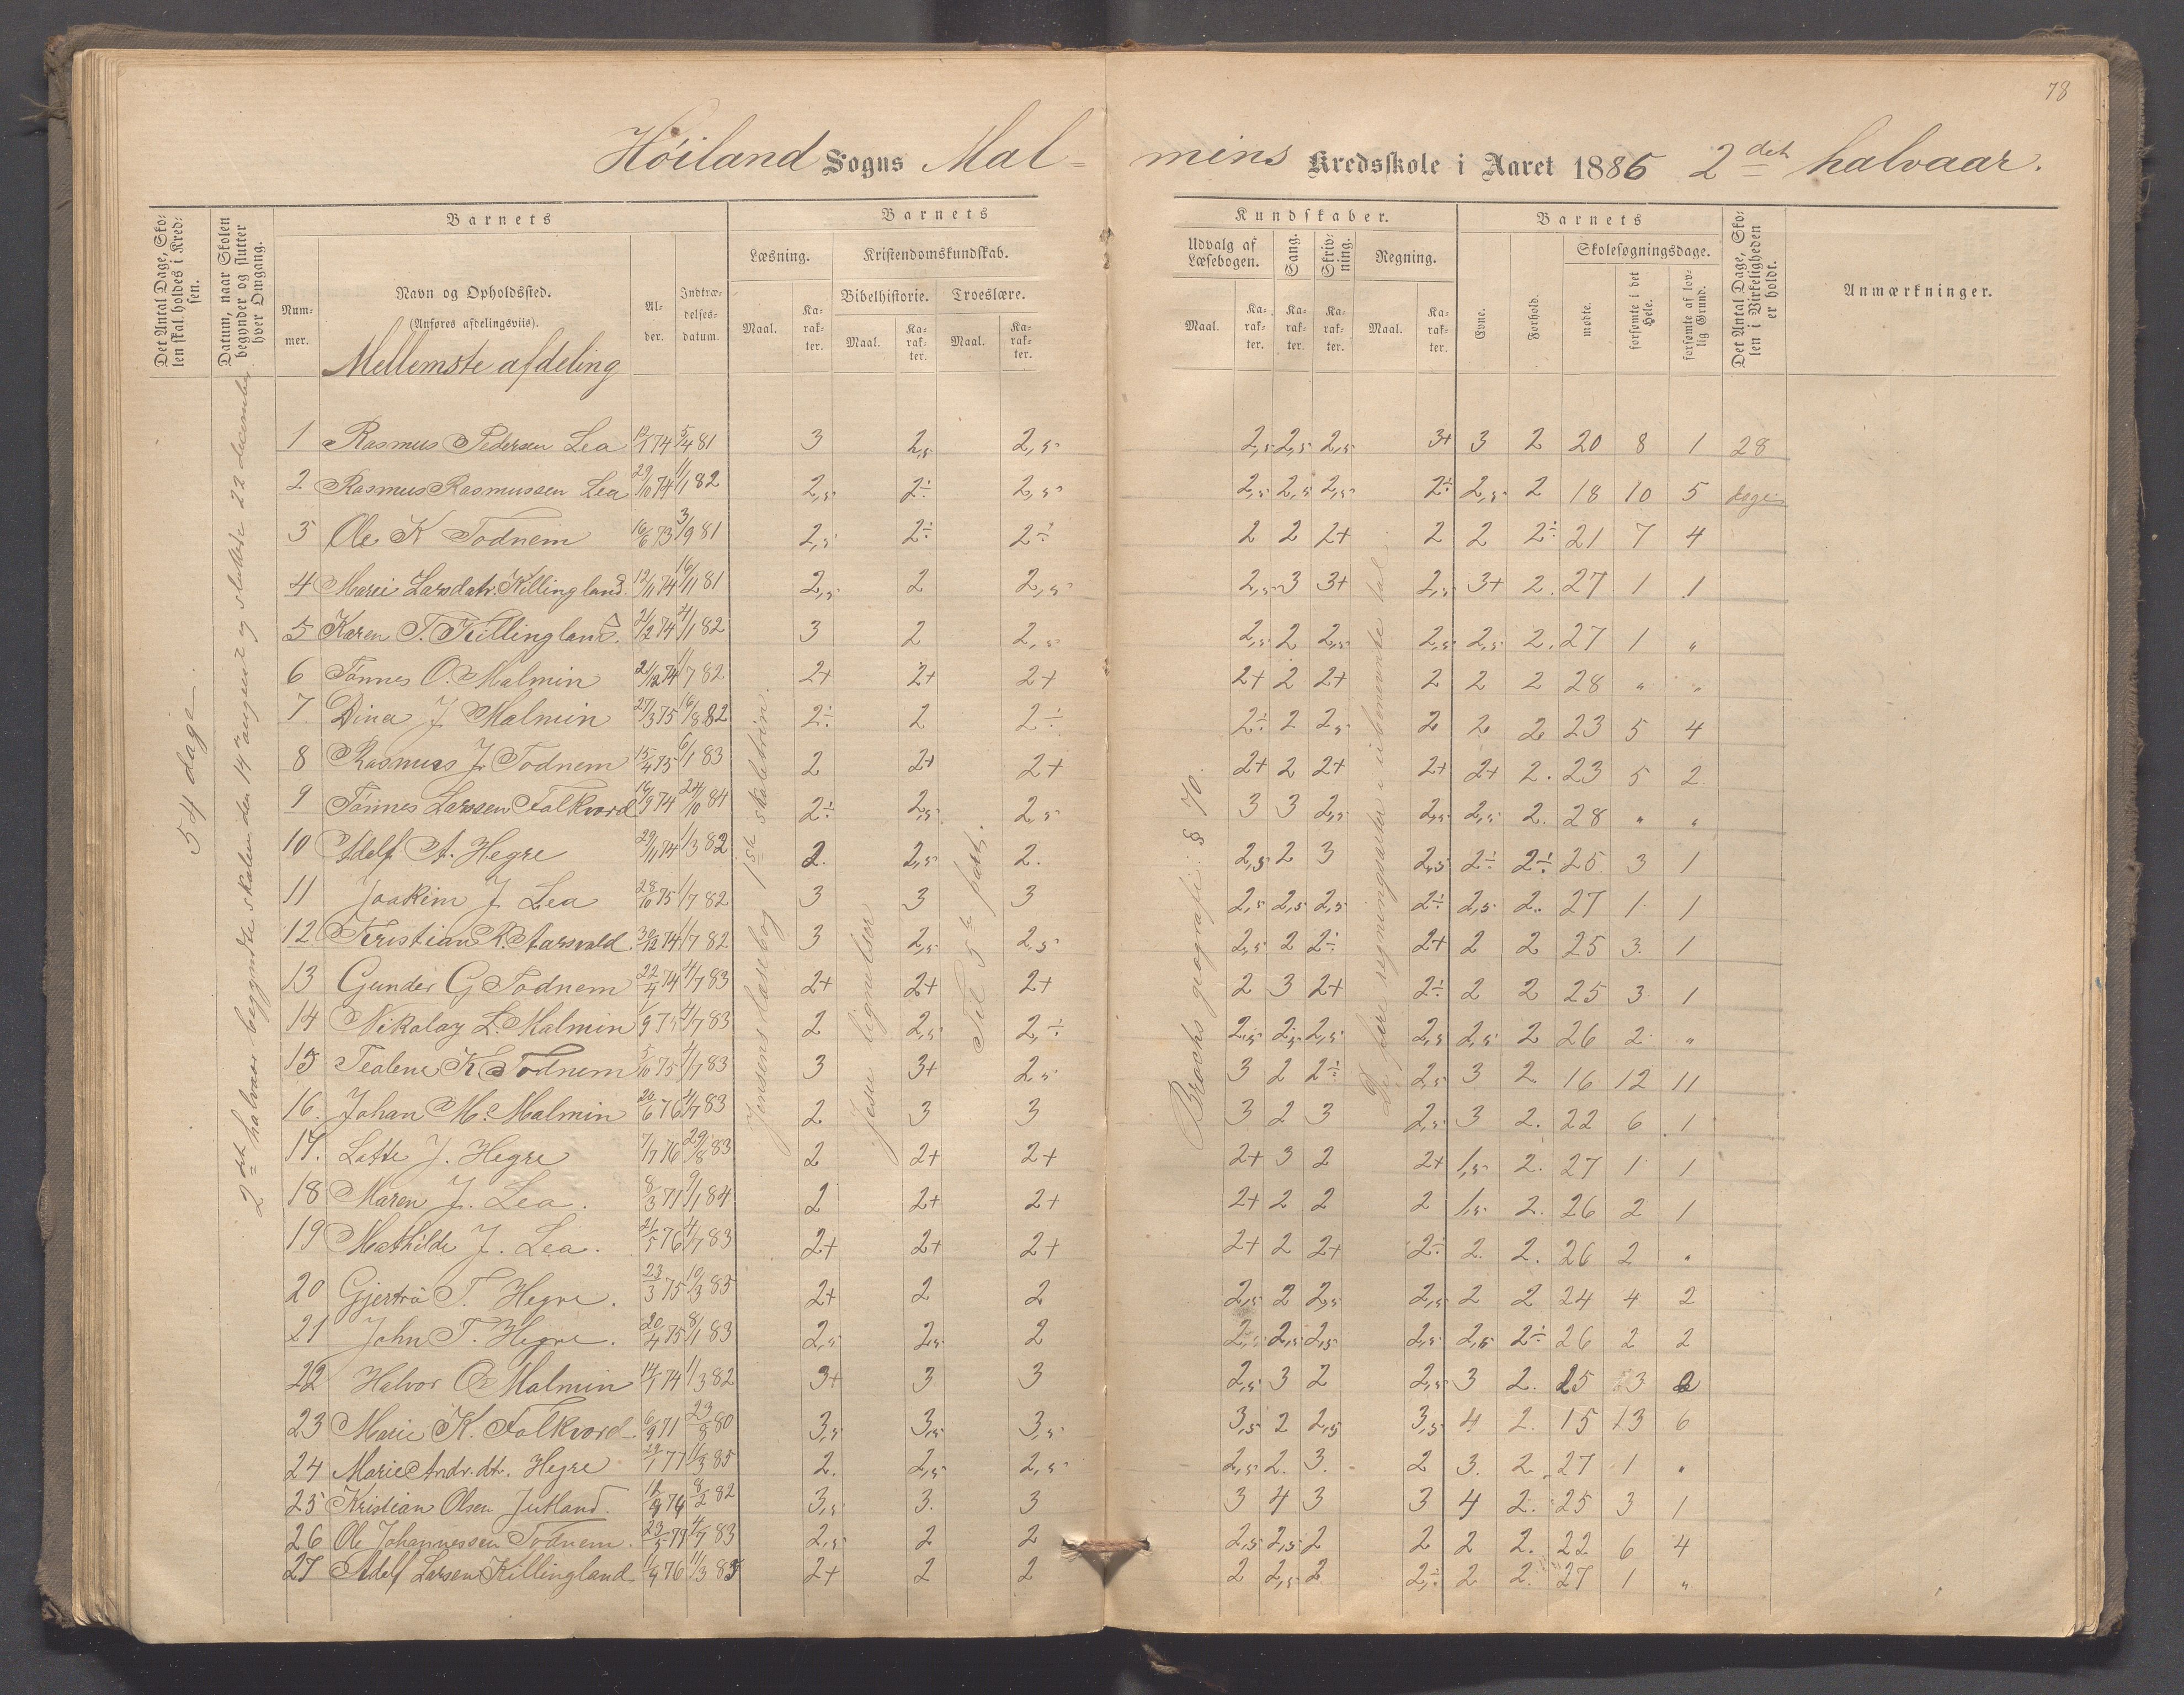 78
Höiland Sogns Mal= mins Kredsskole i Aaret 1886 2det halvaar.
Det Antal Dage, Skolen skal holdes i Kredsen.
Datum, naar Skolen begynder og slutter hver Omgang.
Barnets
Barnets
Kundskaber.
Barnets
Det Antal Dage, Skolen i Virkeligheden er holdt.
Anmærkninger.
Nummer.
Navn og Opholdssted.
(Anføres afdelingsviis).
Alder.
Indtrædelsesdatum.
Læsning.
Kristendomskundskab.
Bibelhistorie.
Troeslære.
Udvalg af Læsebogen.
Sang.
Skrivning.
Regning.
Evne.
Forhold.
Skolesøgningsdage.
mødte.
forsømte i det Hele.
forsømte af lovlig Grund.
Maal. Karakter. Maal. Karakter. Maal. Karakter. Maal. Karakter. Karakter. Karakter. Maal. Karakter.
Mellemste afdeling
54 dage.
2det halvaar begyndte skolen den 14de august og sluttede 22 december.
Jensens læsebog 1ste skoletrin.
Jesu lignelser
Til 5te part.
Brochs geografi: § 70.
De fire regningsarter i ubenevnte tal.
1 Rasmus Pedersen Lea 12/1 74 5/4 81 3 2,5 2,5 2,5 2,5 2,5 3+ 3 2 20 8 1 28
2 Rasmus Rasmussen Lea 29/10 74 11/1 82 2,5 2÷ 2,5 2,5 2,5 2,5 2÷ 2,5 2 18 10 5 dage
3 Ole K Todnem 16/6 73 3/9 81 2,5 2÷ 2÷ 2 2 2+ 2 2 2÷ 21 7 4
4 Marie Larsdatr. Killingland. 12/11 74 16/11 81 2,5 2 2,5 2,5 3 3+ 2,5 3+ 2. 27 1 1
5 Karen T. Killingland. 21/2 74 4/1 82 3 2 2,5 2,5 2 2,5 2,5 2,5 2. 27 1 "
6 Tönnes O. Malmin 21/12 74 1/7 82 2+ 2+ 2+ 2+ 2 2+ 2 2 2 28 " "
7 Dina J Malmin 27/3 75 16/8 82 2÷ 2 2÷ 2÷ 2 2,5 2 2 2 23 5 4
8 Rasmus J. Todnem 15/4 75 6/1 83 2 2+ 2+ 2+ 2 2+ 2+ 2+ 2. 23 5 2
9 Tönnes Larssen Folkvord 16/9 74 24/10 84 2÷ 2,5 2,5 3 3 2,5 2,5 2,5 2. 28 " "
10 Adolf A. Hegre 29/11 74 1/3 82 2. 2,5 2. 2,5 2 3 2,5 2÷ 2÷ 25 3 1
11 Joakim J Lea 28/10 75 1/7 82 3 3 3 2,5 2,5 2,5 2÷ 2,5 2. 27 1 1
12 Kristian R. Aarsvold. 30/12 74 1/7 82 3 2,5 2,5 2,5 2 2÷ 2+ 2 2 25 3. 1
13 Gunder G Todnem 22/4 74 4/7 83 2+ 2+ 2+ 2 3 2+ 2÷ 2 2 25 3 1
14 Nikolay L. Malmin 1/9 75 4/7 83 2 2,5 2,÷ 2,5 2,5 2,5 2,5 2,5 2 26 2 "
15 Tealene K Todnem 5/10 75 4/7 83 3 3+ 2,5 3 2 2÷ 2,5 3 2 16 12 11
16. Johan M. Malmin 20/6 76 4/7 83 2 3 3 3 2 3 2,5 3 2. 22 6 1
17. Lotte J. Hegre 7/7 76 29/8 83 2 2+ 2+ 2+ 3 2 2+ 1,5 2. 27 1 1
18 Maren J. Lea. 8/3 77 9/1 84 2 2+ 2+ 2+ 2 2 2 1,5 2. 26 2 1
19 Mathilde J. Lea. 21/5 76 4/7 83 2+ 2+ 2+ 2+ 2 2+ 2÷ 2. 2. 26 2 "
20 Gjertrü T. Hegre. 23/3 75 10/3 83 2+ 2 2 2,5 2 2,5 2,5 2 2 24 4 2
21 John T. Hegre. 20/4 75 8/1 83 2,5 2,5 2 2,5 2,5 2,5 2,5 2,5 2÷ 26 2 2
22 Halvor O. Malmin 14/1 74 1/3 82 3+ 3 3 2,5 3 2 2,5 3 2. 25 3 2
23 Marie K. Folkvord. 6/9 71 23/8 80 3,5 3,5 3,5 3,5 2 2,5 3,5 4 2. 15 13 6
24 Marie Andr.dt. Hegre 29/1 77 11/3 85 2. 2,5 2,5 2,5 2. 3. 2 3. 2. 27 1 "
25 Kristian Olsen Jutland. 12/9 74 8/2 82 3,5 3. 3 3 4 3 3 4 2. 25 3 1
26 Ole Johannessen Todnem. 23/5 77 4/7 83 2,5 2 2 2,5 2,5 2 2 2 2. 22 6 4
27 Adolf Larsen Killingland 11/4 76 11/3 85 2+ 2 2 2 2,5 2 2,÷ 2 2. 27 1 "